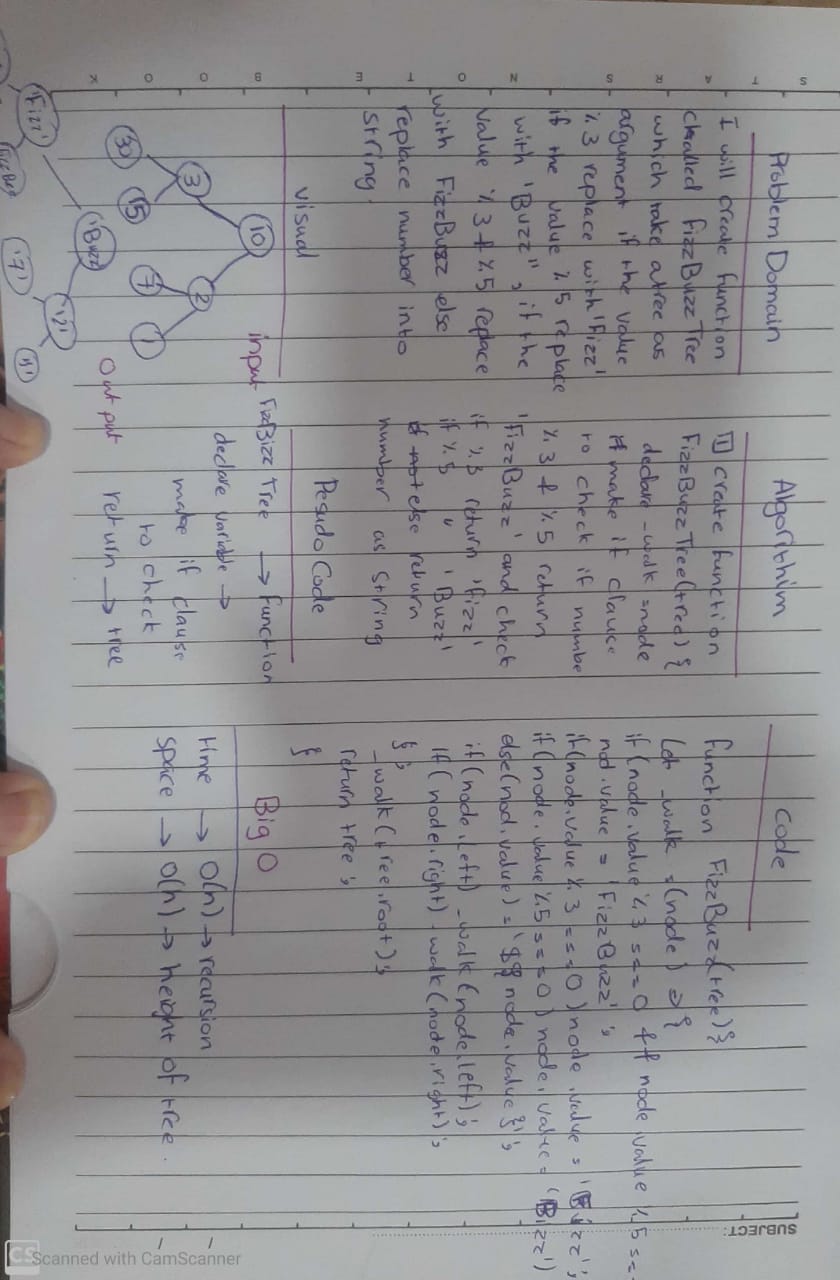 Problem Domain
I will create function
called fizzBuzz Tree
which take a tree as
argument if the value
% 3 replace with 'Fizz'
if the value % 5 replace
with 'Buzz'', if the
value % 3 & % 5 replace
with FizzBuzz else
replace number into
string.
visual
10
3
2
30
15
7
1
input
'Buzz'
'Fizz'
'2'
'7'
'1'
Output
Algorithim
1 create function
FizzBuzzTree(tree) {
declare _walk = node
make if clauce
to check if numbe
% 3 & % 5 return
'FizzBuzz' and check
if % 3 return 'fizz'
if % 5 " 'Buzz'
else return
number as string
Pesudo Code
Tree → function
declare variable →
make if clause
to check
return → tree
Code
function FizzBuzz(tree){
Let _walk = (node) => {
if (node.value % 3 === 0 && node.value % 5 ==
nod.value = 'FizzBuzz';
if(node.value % 3 === 0) node.value =
if(node.value % 5 === 0) node.value =
else(nod.value) = '${node.value}';
if(node.left) _walk(node.left);
If(node.right) _walk(node.right);
};
_walk(tree.root);
return tree;
}
Big O
time → O(n) → recursion
space → O(h) → height of tree.
SUBJECT:
S T A R S N O T E B O O K
CS Scanned with CamScanner